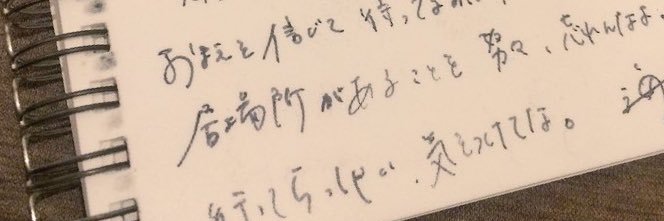 おまえを信じて待ってま
居場所があることを努々、忘れんなよ
行ってらっしゃい、気をつけてな。